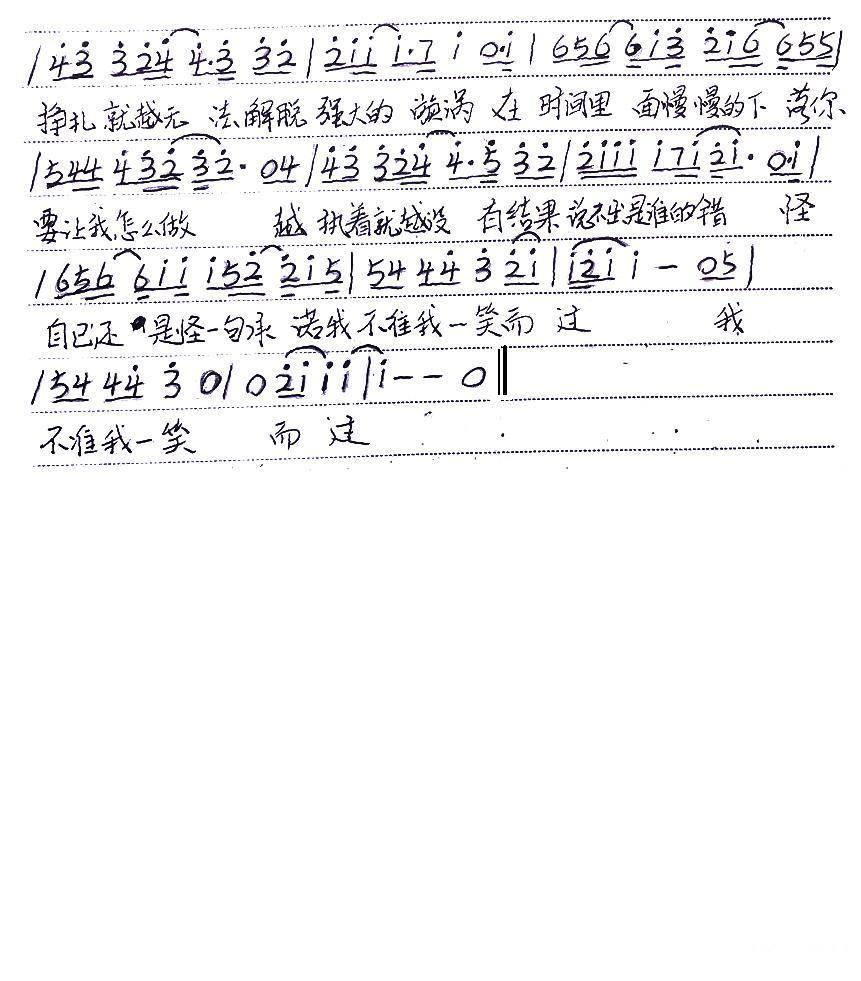 | 4̇3̇ 3̇2̇4̇ 4̇·3̇ 3̇2̇ | 2̇1̇1̇ 1̇·7 1̇ 0·1̇ | 656 61̇3̇ 2̇1̇6 655 |
挣扎就越无 法解脱 强大的 漩涡 在 时间里 面慢慢的下 落你
| 544 4̇3̇2̇ 3̇2̇· 04 | 4̇3̇ 3̇2̇4̇ 4̇·5̇ 3̇2̇ | 2̇1̇1̇1̇ 1̇71̇ 2̇1̇· 01̇ |
要让我怎么做 越 执着就越没 有结果 说不出是谁的错 怪
| 656 61̇1̇ 1̇52̇ 2̇1̇5 | 54 44̇ 3̇ 2̇1̇ | 1̇2̇1̇ 1̇ — 05 |
自己还 是怪一句承 诺我 不准我一笑而 过 我
| 54 44̇ 3̇ 0 | 0 2̇1̇ 1̇ 1̇ | 1̇ — — 0 ‖
不准我一笑 而 过